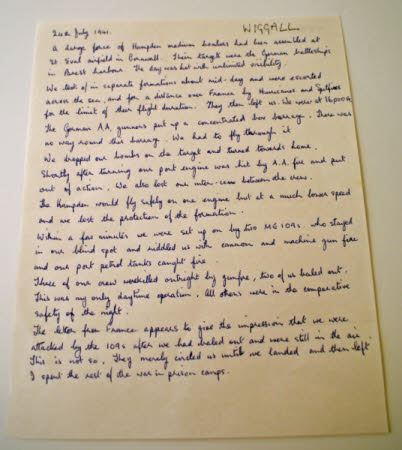 24th July 1941. WIGGALL
A large force of Hampden medium bombers had been assembled at
St Eval airfield in Cornwall. Their targets were the German battleships
in Brest harbour. The day was hot with unlimited visibility.
We took off in separate formations about mid-day and were escorted
across the sea, and for a distance over France by Hurricanes and Spitfires
for the limit of their flight duration. They then left us. We were at 16,000 ft.
The German A.A. gunners put up a concentrated box barrage. There was
no way round this barrage. We had to fly through it
We dropped our bombs on the target and turned towards home.
Shortly after turning our port engine was hit by A.A. fire and put
out of action. We also lost our inter-com between the crew.
The Hampden would fly safely on one engine but at a much lower speed
and we lost the protection of the formation.
Within a few minutes we were set up on by two ME 109s. who stayed
in our blind spot and riddled us with cannon and machine gun fire
and our port petrol tanks caught fire.
Three of our crew were killed outright by gunfire, two of us baled out.
This was my only daytime operation. All others were in the comparative
safety of the night.
The letter from France appears to give the impression that we were
attacked by the 109s after we had baled out and were still in the air.
This is not so. They merely circled us until we landed and then left
I spent the rest of the war in prison camps.